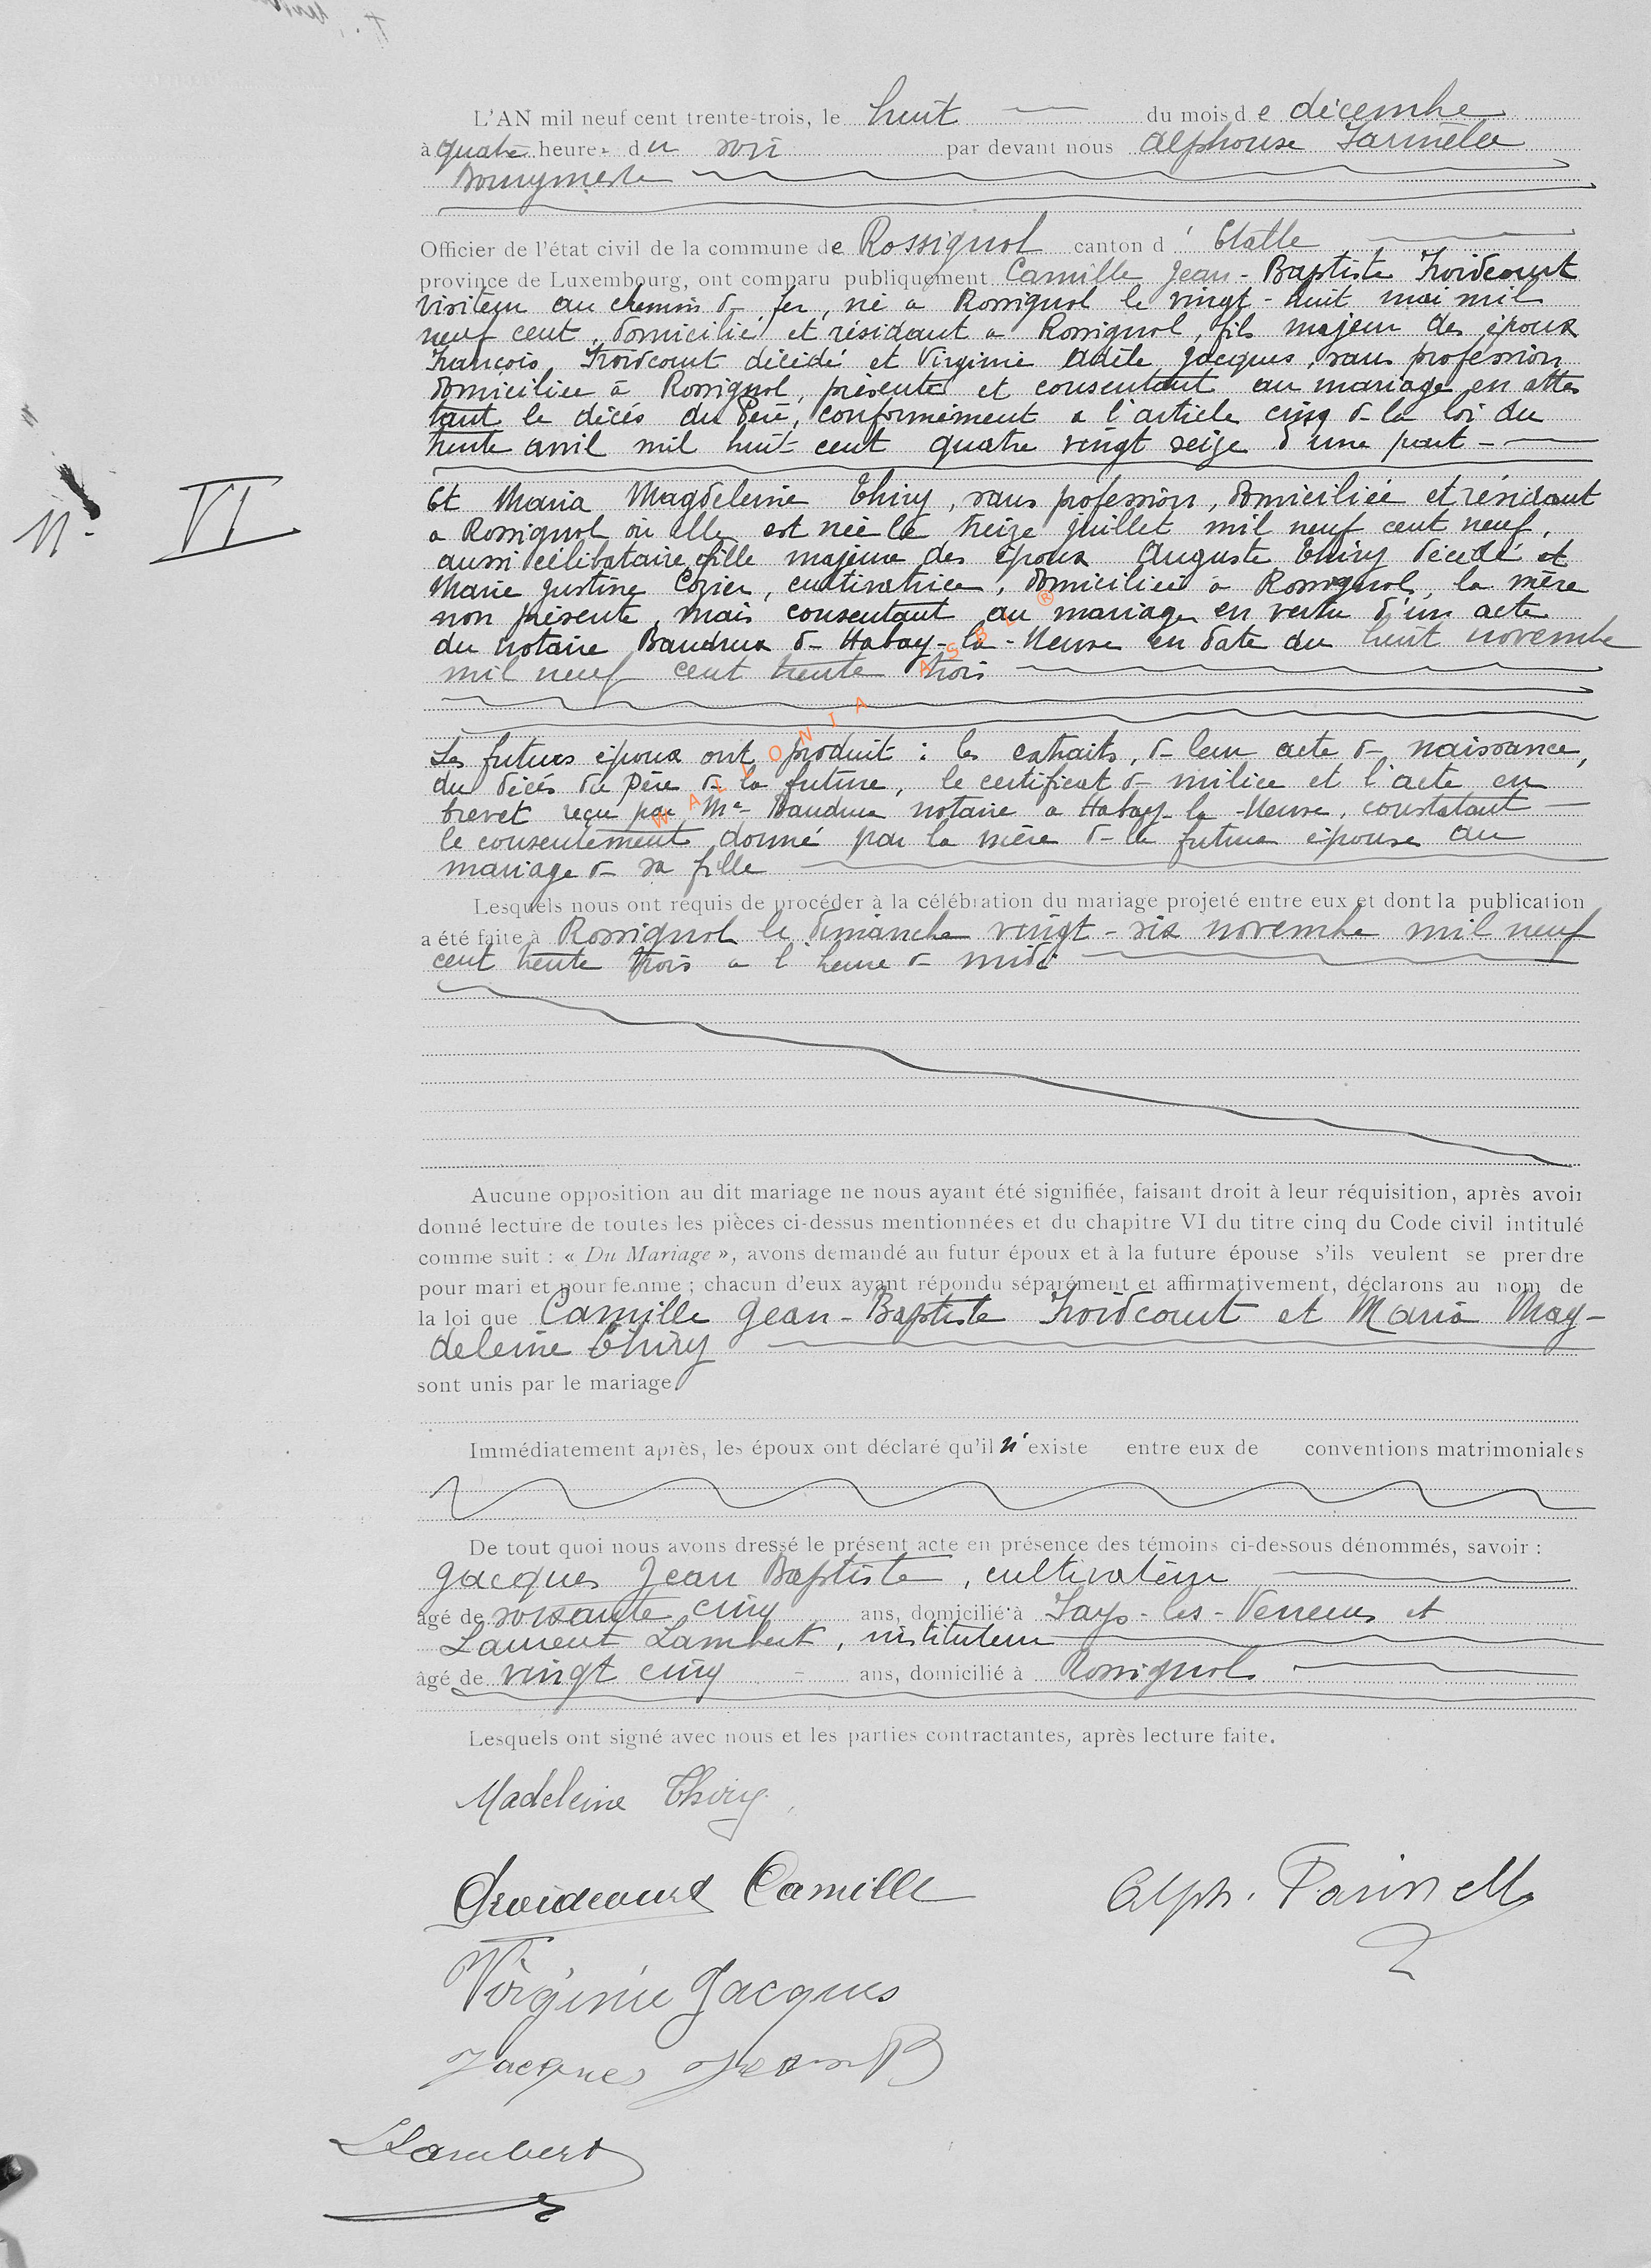 L'AN mil neuf cent trente-trois, le huit du mois de décembre
à quatre heures du soir par devant nous Alphonse
Bourgmestre
Officier de l'état civil de la commune de Rossignol canton d'Etalle
province de Luxembourg, ont comparu publiquement Camille Jean-Baptiste Froidcourt
visiteur au chemin de fer, né à Rossignol le vingt-huit mai mil
neuf cent, domicilié et résidant à Rossignol, fils majeur des époux
François Froidcourt décédé et Virginie Adèle Jacques, sans profession
domiciliée à Rossignol, présente et consentant au mariage en attes
tant le décès du Père, conformément à l'article cinq de la loi du
trente avril mil huit cent quatre vingt seize d'une part
N° VI
Et Maria Magdeleine Thiry, sans profession, domiciliée et résidant
à Rossignol où elle est née le treize juillet mil neuf cent neuf,
aussi célibataire fille majeure des époux Auguste Thiry décédé et
Marie Justine Cozier, cultivatrice, domiciliée à Rossignol, la mère
non présente, mais consentant au mariage en vertu d'un acte
du notaire Baudrux de Habay-la-Neuve en date du huit novembre
mil neuf cent trente trois
Les futurs époux ont produit : les extraits de leur acte de naissance,
du décès du Père de la future, le certificat de milice et l'acte en
brevet reçu par Me Baudrux notaire à Habay-la-Neuve, constatant
le consentement donné par la mère de la future épouse au
mariage de sa fille
WALLONIA ASBL ®
Lesquels nous ont requis de procéder à la célébration du mariage projeté entre eux et dont la publication
a été faite à Rossignol le dimanche vingt-six novembre mil neuf
cent trente trois à l'heure de midi
Aucune opposition au dit mariage ne nous ayant été signifiée, faisant droit à leur réquisition, après avoir
donné lecture de toutes les pièces ci-dessus mentionnées et du chapitre VI du titre cinq du Code civil intitulé
comme suit : « Du Mariage », avons demandé au futur époux et à la future épouse s'ils veulent se prendre
pour mari et pour femme ; chacun d'eux ayant répondu séparément et affirmativement, déclarons au nom de
la loi que Camille Jean-Baptiste Froidcourt et Maria Mag-
deleine Thiry
sont unis par le mariage.
Immédiatement après, les époux ont déclaré qu'il n'existe entre eux de conventions matrimoniales
De tout quoi nous avons dressé le présent acte en présence des témoins ci-dessous dénommés, savoir :
Jacques Jean Baptiste, cultivateur
âgé de soixante cinq ans, domicilié à Fays-les-Veneurs et
Laurent Lambert, instituteur
âgé de vingt cinq ans, domicilié à Rossignol
Lesquels ont signé avec nous et les parties contractantes, après lecture faite.
Madeleine Thiry
Froidcourt Camille
Alph.
Virginie Jacques
Jacques Jean B
L Lambert